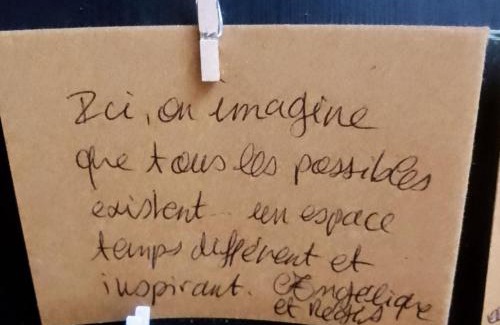 Ici, on imagine
que tous les possibles
existent un espace
temps différent et
inspirant. Angélique
et